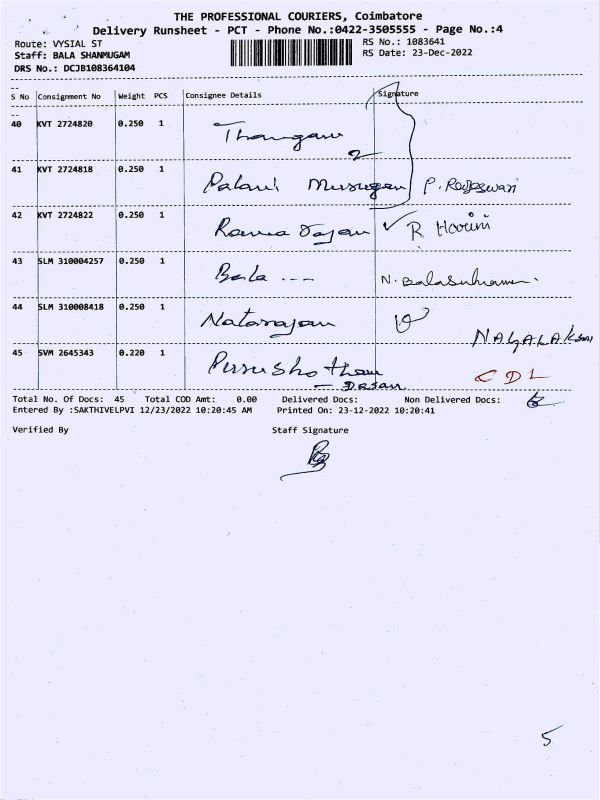 THE PROFESSIONAL COURIERS, Coimbatore
Delivery Runsheet - PCT - Phone No.:0422-3505555 - Page No.:4
Route: VYSIAL ST
RS No.: 1083641
Staff: BALA SHANMUGAM
RS Date: 23-Dec-2022
DRS No.: DCJB108364104
S No Consignment No Weight PCS Consignee Details Signature
40 KVT 2724820 0.250 1 Thangam
41 KVT 2724818 0.250 1 Palani Murugan P. Rajeswari
42 KVT 2724822 0.250 1 Rama Rajan ✓ R Harini
43 SLM 310004257 0.250 1 Bala --- N. Balasubramani.
44 SLM 310008418 0.250 1 Natarajan
NAGALAKSMI
45 SVM 2645343 0.220 1 Purushotham
- Dasan. CDL
Total No. Of Docs: 45 Total COD Amt: 0.00 Delivered Docs: Non Delivered Docs:
Entered By :SAKTHIVELPVI 12/23/2022 10:20:45 AM Printed On: 23-12-2022 10:20:41
Verified By Staff Signature
5